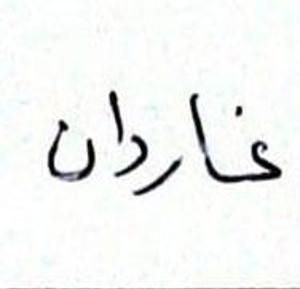 غاردان